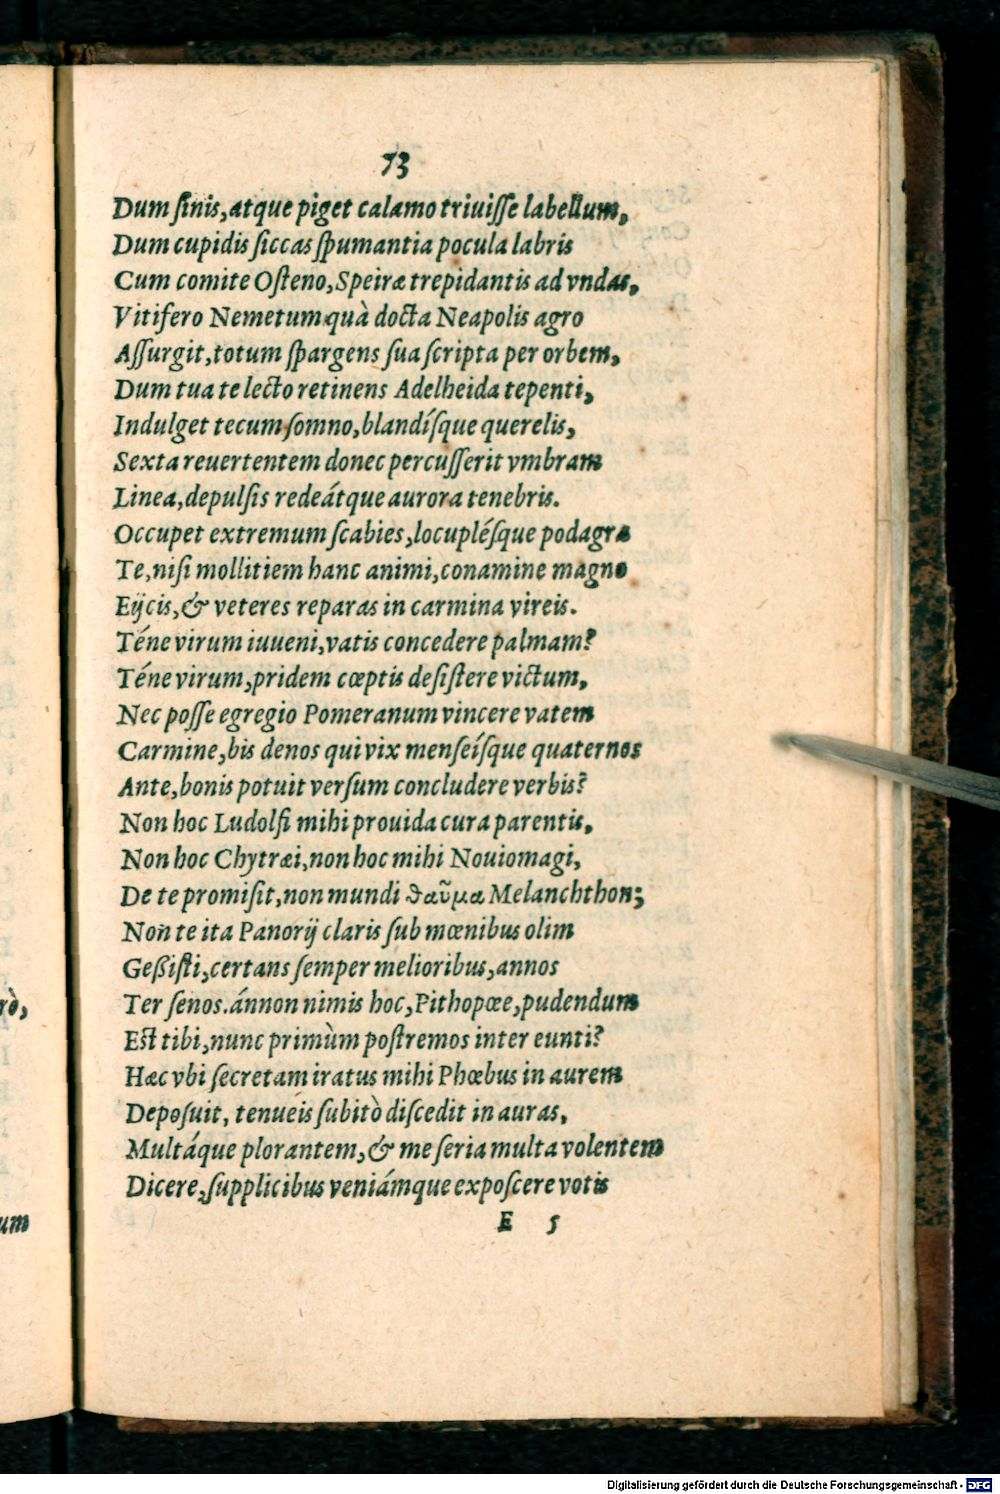 73
Dum ſinis, atque piget calamo triuiſſe labellum,
Dum cupidis ſiccas ſpumantia pocula labris
Cum comite Oſteno, Speiræ trepidantis ad vndas,
Vitifero Nemetum quà docta Neapolis agro
Aſſurgit, totum ſpargens ſua ſcripta per orbem,
Dum tua te lecto retinens Adelheida tepenti,
Indulget tecum ſomno, blandíſque querelis,
Sexta reuertentem donec percuſſerit vmbram
Linea, depulſis redeátque aurora tenebris.
Occupet extremum ſcabies, locupléſque podagra
Te, niſi mollitiem hanc animi, conamine magno
Eijcis, & veteres reparas in carmina vireis.
Téne virum iuueni, vatis concedere palmam?
Téne virum, pridem cœptis deſiſtere victum,
Nec poſſe egregio Pomeranum vincere vatem
Carmine, bis denos qui vix menſeíſque quaternos
Ante, bonis potuit verſum concludere verbis?
Non hoc Ludolfi mihi prouida cura parentis,
Non hoc Chytræi, non hoc mihi Nouiomagi,
De te promiſit, non mundi θαῦμα Melanchthon;
Non te ita Panorij claris ſub mœnibus olim
Geßiſti, certans ſemper melioribus, annos
Ter ſenos. ánnon nimis hoc, Pithopœe, pudendum
Eſt tibi, nunc primùm poſtremos inter eunti?
Hæc vbi ſecretam iratus mihi Phœbus in aurem
Depoſuit, tenueis ſubitò diſcedit in auras,
Multáque plorantem, & me ſeria multa volentem
Dicere, ſupplicibus veniámque expoſcere votis
E 5
rò,
um
Digitalisierung gefördert durch die Deutsche Forschungsgemeinschaft - DFG